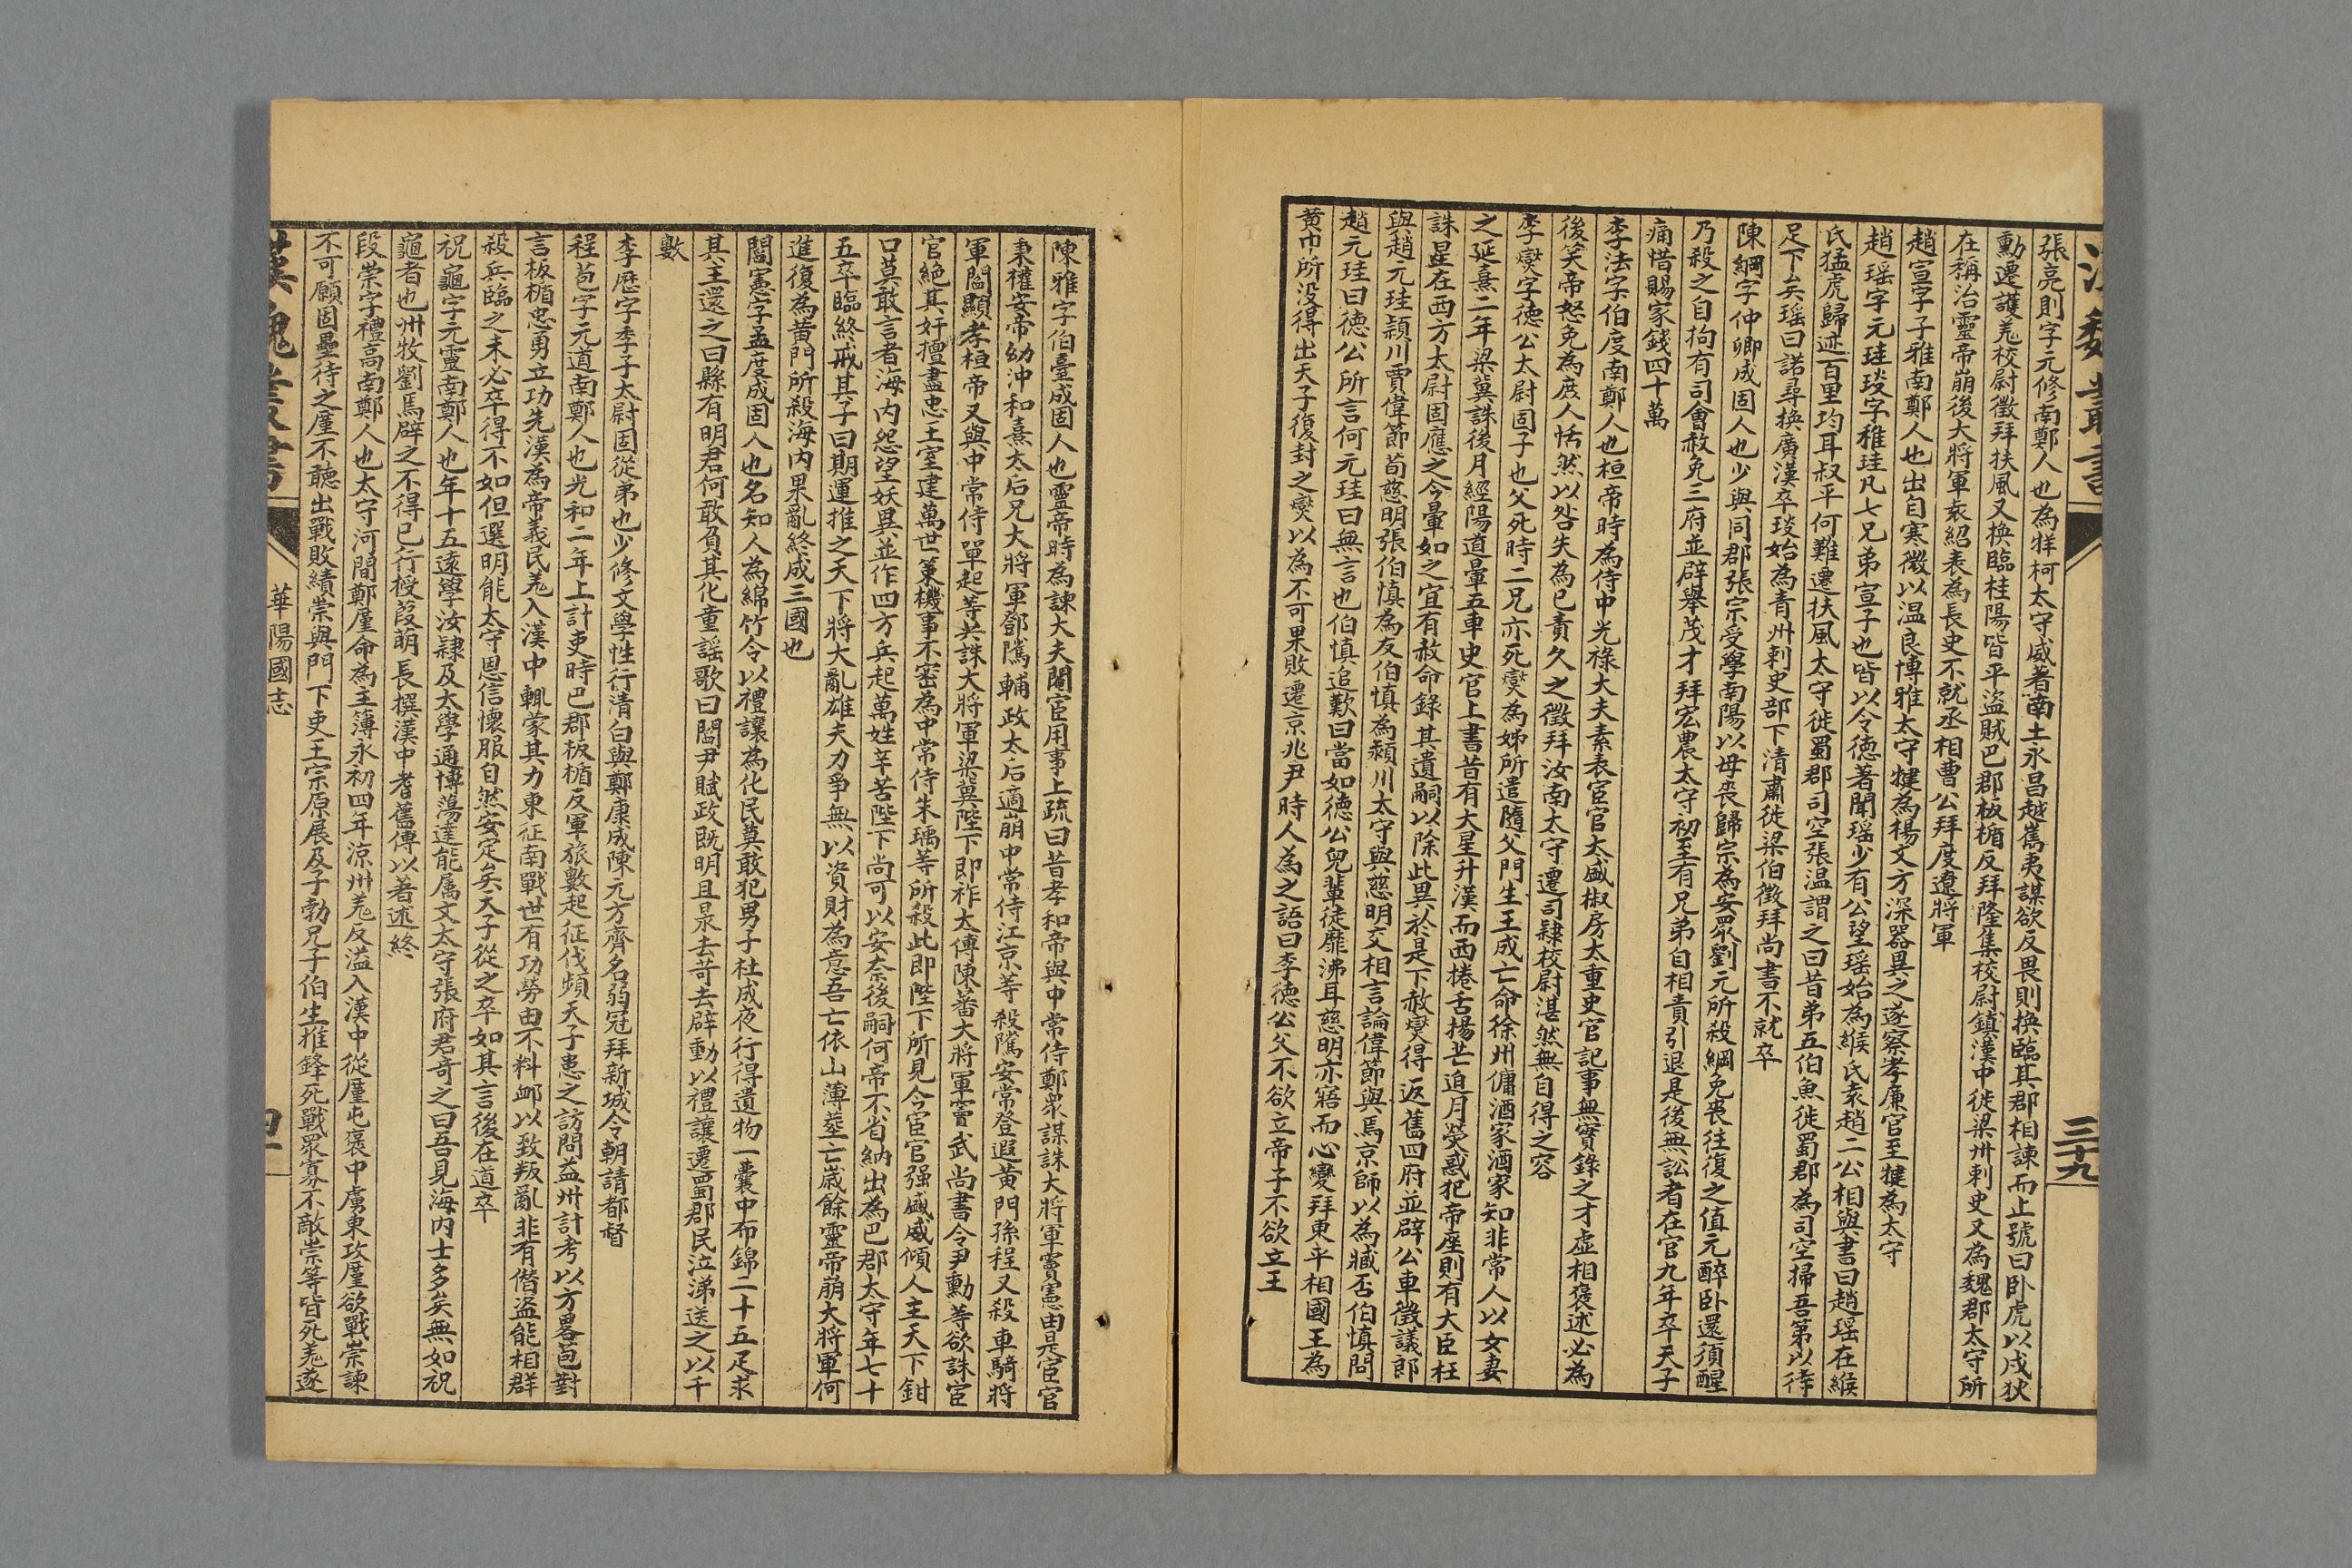 漢魏叢書
三十九
張亮則字元修南鄭人也為牂柯太守威著南土永昌越嶲夷謀欲反畏則換臨其郡相諫而止號曰卧虎以戍狄
勳遷護羗校尉徵拜扶風又換臨桂陽皆平盜賊巴郡板楯反拜隆集校尉鎮漢中徙梁州刺史又為魏郡太守所
在稱治靈帝崩後大將軍袁紹表為長史不就丞相曹公拜度遼將軍
趙宣字子雅南鄭人也出自寒微以温良博雅太守犍為楊文方深器異之遂察孝廉官至犍為太守
趙瑶字元珪琰字稚珪凡七兄弟宣子也皆以令德著聞瑶少有公望瑶始為緱氏袁趙二公相與書曰趙瑶在緱
氏猛虎歸迹百里均耳叔平何難遷扶風太守徙蜀郡司空張温謂之曰昔弟五伯魚徙蜀郡為司空掃吾第以待
足下矣瑶曰諾尋換廣漢卒琰始為青州刺史部下清肅徙梁伯徵拜尚書不就卒
陳綱字仲卿成固人也少與同郡張宗受學南陽以母喪歸宗為安眾劉元所殺綱免喪往復之值元醉卧還須醒
乃殺之自拘有司會赦免三府並辟舉茂才拜宏農太守初至有兄弟自相責引退是後無訟者在官九年卒天子
痛惜賜家錢四十萬
李法字伯度南鄭人也桓帝時為侍中光祿大夫素表宦官太盛椒房太重史官記事無實錄之才虛相褒述必為
後笑帝怒免為庶人恬然以咎失為已責久之徵拜汝南太守遷司隸校尉湛然無自得之容
李燮字德公太尉固子也父死時二兄亦死燮為姊所遣隨父門生王成亡命徐州傭酒家酒家知非常人以女妻
之延熹二年梁冀誅後月經陽道暈五車史官上書昔有大星升漢而西捲舌揚芒迫月熒惑犯帝座則有大臣枉
誅星在西方太尉固應之今暈如之宜有赦命錄其遺嗣以除此異於是下赦燮得返舊四府並辟公車徵議郎
與趙元珪潁川賈偉節荀慈明張伯慎為友伯慎為潁川太守與慈明交相言論偉節與馬京師以為臧否伯慎問
趙元珪曰德公所言何元珪曰無言也伯慎追歎曰當如德公兒輩徒靡沸耳慈明亦寤而心變拜東平相國王為
黃巾所没得出天子復封之燮以為不可果敗遷京兆尹時人為之語曰李德公父不欲立帝子不欲立王
陳雅字伯臺成固人也靈帝時為諫大夫閹宦用事上疏曰昔孝和帝與中常侍鄭眾謀誅大將軍竇憲由是宦官
秉權安帝幼沖和熹太后兄大將軍鄧騭輔政太后適崩中常侍江京等殺騭安常登遐黃門孫程又殺車騎將
軍閻顯孝桓帝又與中常侍單起等共誅大將軍梁冀陛下即祚太傅陳蕃大將軍竇武尚書令尹勳等欲誅宦
官絶其奸擅盡忠王室建萬世策機事不密為中常侍朱瑀等所殺此即陛下所見今宦官强盛威傾人主天下鉗
口莫敢言者海内怨望妖異並作四方兵起萬姓辛苦陛下尚可以安奈後嗣何帝不省納出為巴郡太守年七十
五卒臨終戒其子曰期運推之天下將大亂雄夫力爭無以資財為意吾亡依山薄葬亡歲餘靈帝崩大將軍何
進復為黄門所殺海内果亂終成三國也
閻憲字孟度成固人也名知人為綿竹令以禮讓為化民莫敢犯男子杜成夜行得遺物一囊中布錦二十五疋求
其主還之曰縣有明君何敢負其化童謡歌曰閻尹賦政既明且昶去苛去辟動以禮讓遷蜀郡民泣涕送之以千
數
李歷字季子太尉固從弟也少修文學性行清白與鄭康成陳元方齊名弱冠拜新城令朝請都督
程苞字元道南鄭人也光和二年上計吏時巴郡板楯反軍旅數起征伐頻天子患之訪問益州計考以方畧苞對
言板楯忠勇立功先漢為帝義民羗入漢中輒蒙其力東征南戰世有功勞由不料卹以致叛亂非有僭盗能相群
殺兵臨之未必卒得不如但選明能太守恩信懷服自然安定矣天子從之卒如其言後在道卒
祝龜字元靈南鄭人也年十五遠學汝隸及太學通博蕩達能属文太守張府君奇之曰吾見海内士多矣無如祝
龜者也州牧劉焉辟之不得已行授葭萌長撰漢中耆舊傳以著述終
段崇字禮高南鄭人也太守河間鄭廑命為主簿永初四年涼州羗反溢入漢中從廑屯褒中虜東攻廑欲戰崇諫
不可願固壘待之廑不聽出戰敗績崇與門下吏王宗原展及子勃兄子伯生推鋒死戰眾寡不敵崇等皆死羗遂
漢魏叢書
華陽國志